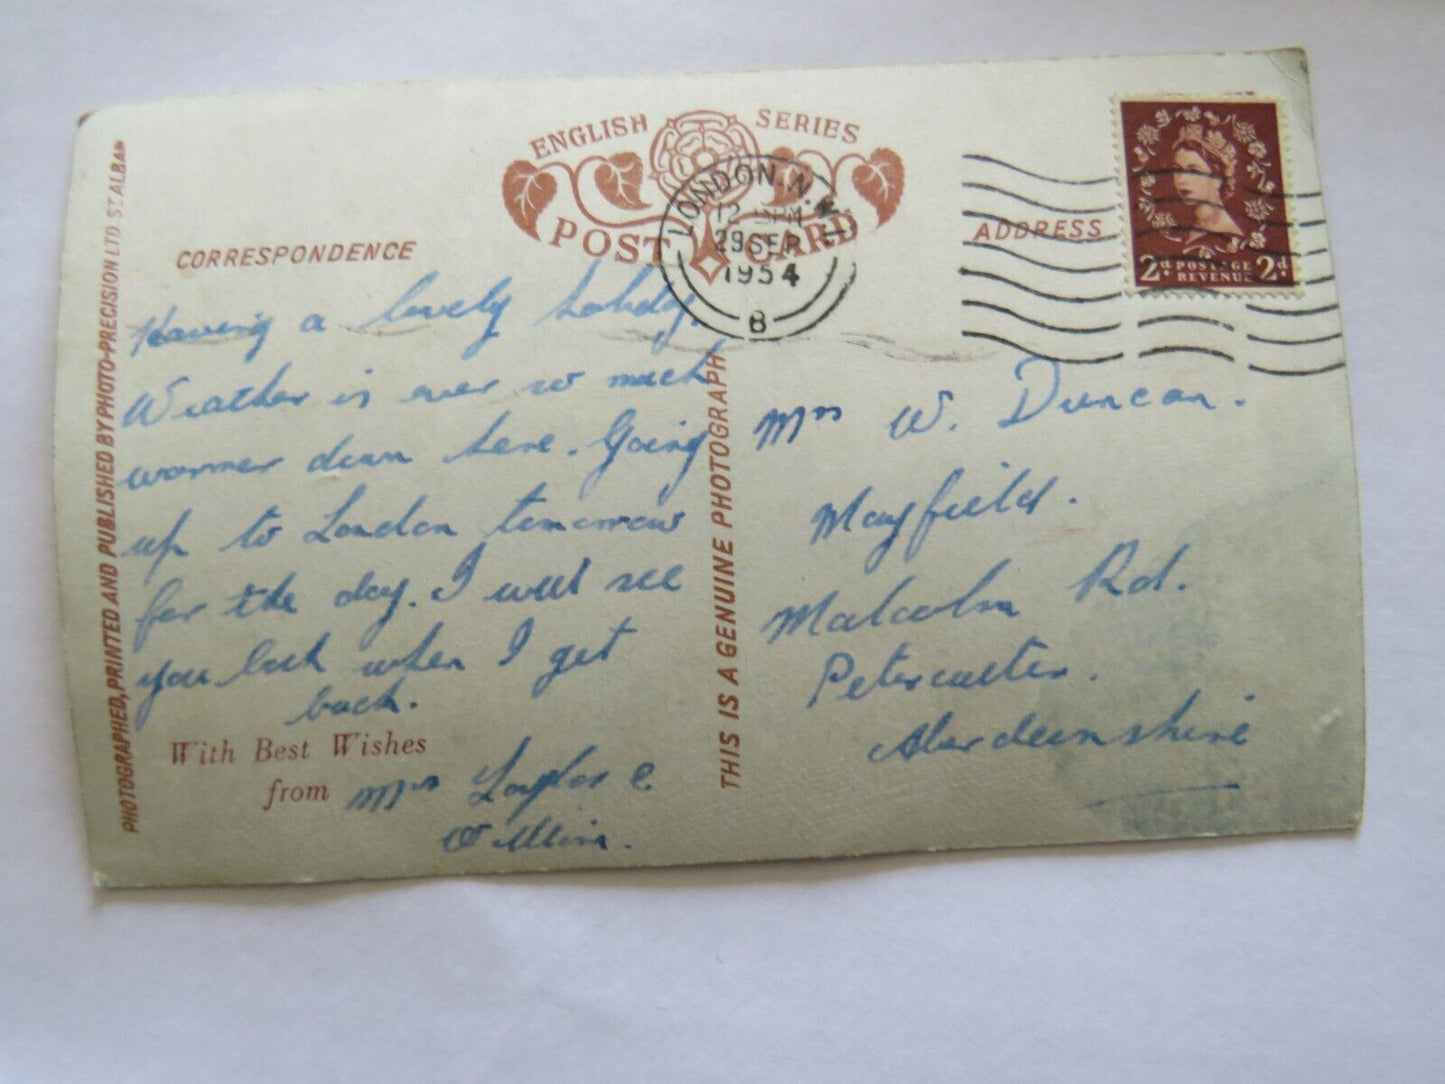 ENGLISH SERIES
POST CARD
CORRESPONDENCE
ADDRESS
LONDON. N.W.1
12 PM
29 SEP
1954
B
2d POSTAGE 2d
REVENUE
PHOTOGRAPHED, PRINTED AND PUBLISHED BY PHOTO-PRECISION LTD. ST. ALBANS
Having a lovely holiday.
Weather is ever so much
warmer down here. Going
up to London tomorrow
for the day. I will see
you back when I get
back.
With Best Wishes
from Mrs Taylor &
THIS IS A GENUINE PHOTOGRAPH
Mrs W. Duncan.
Mayfield.
Malcolm Rd.
Peterculter.
Aberdeenshire